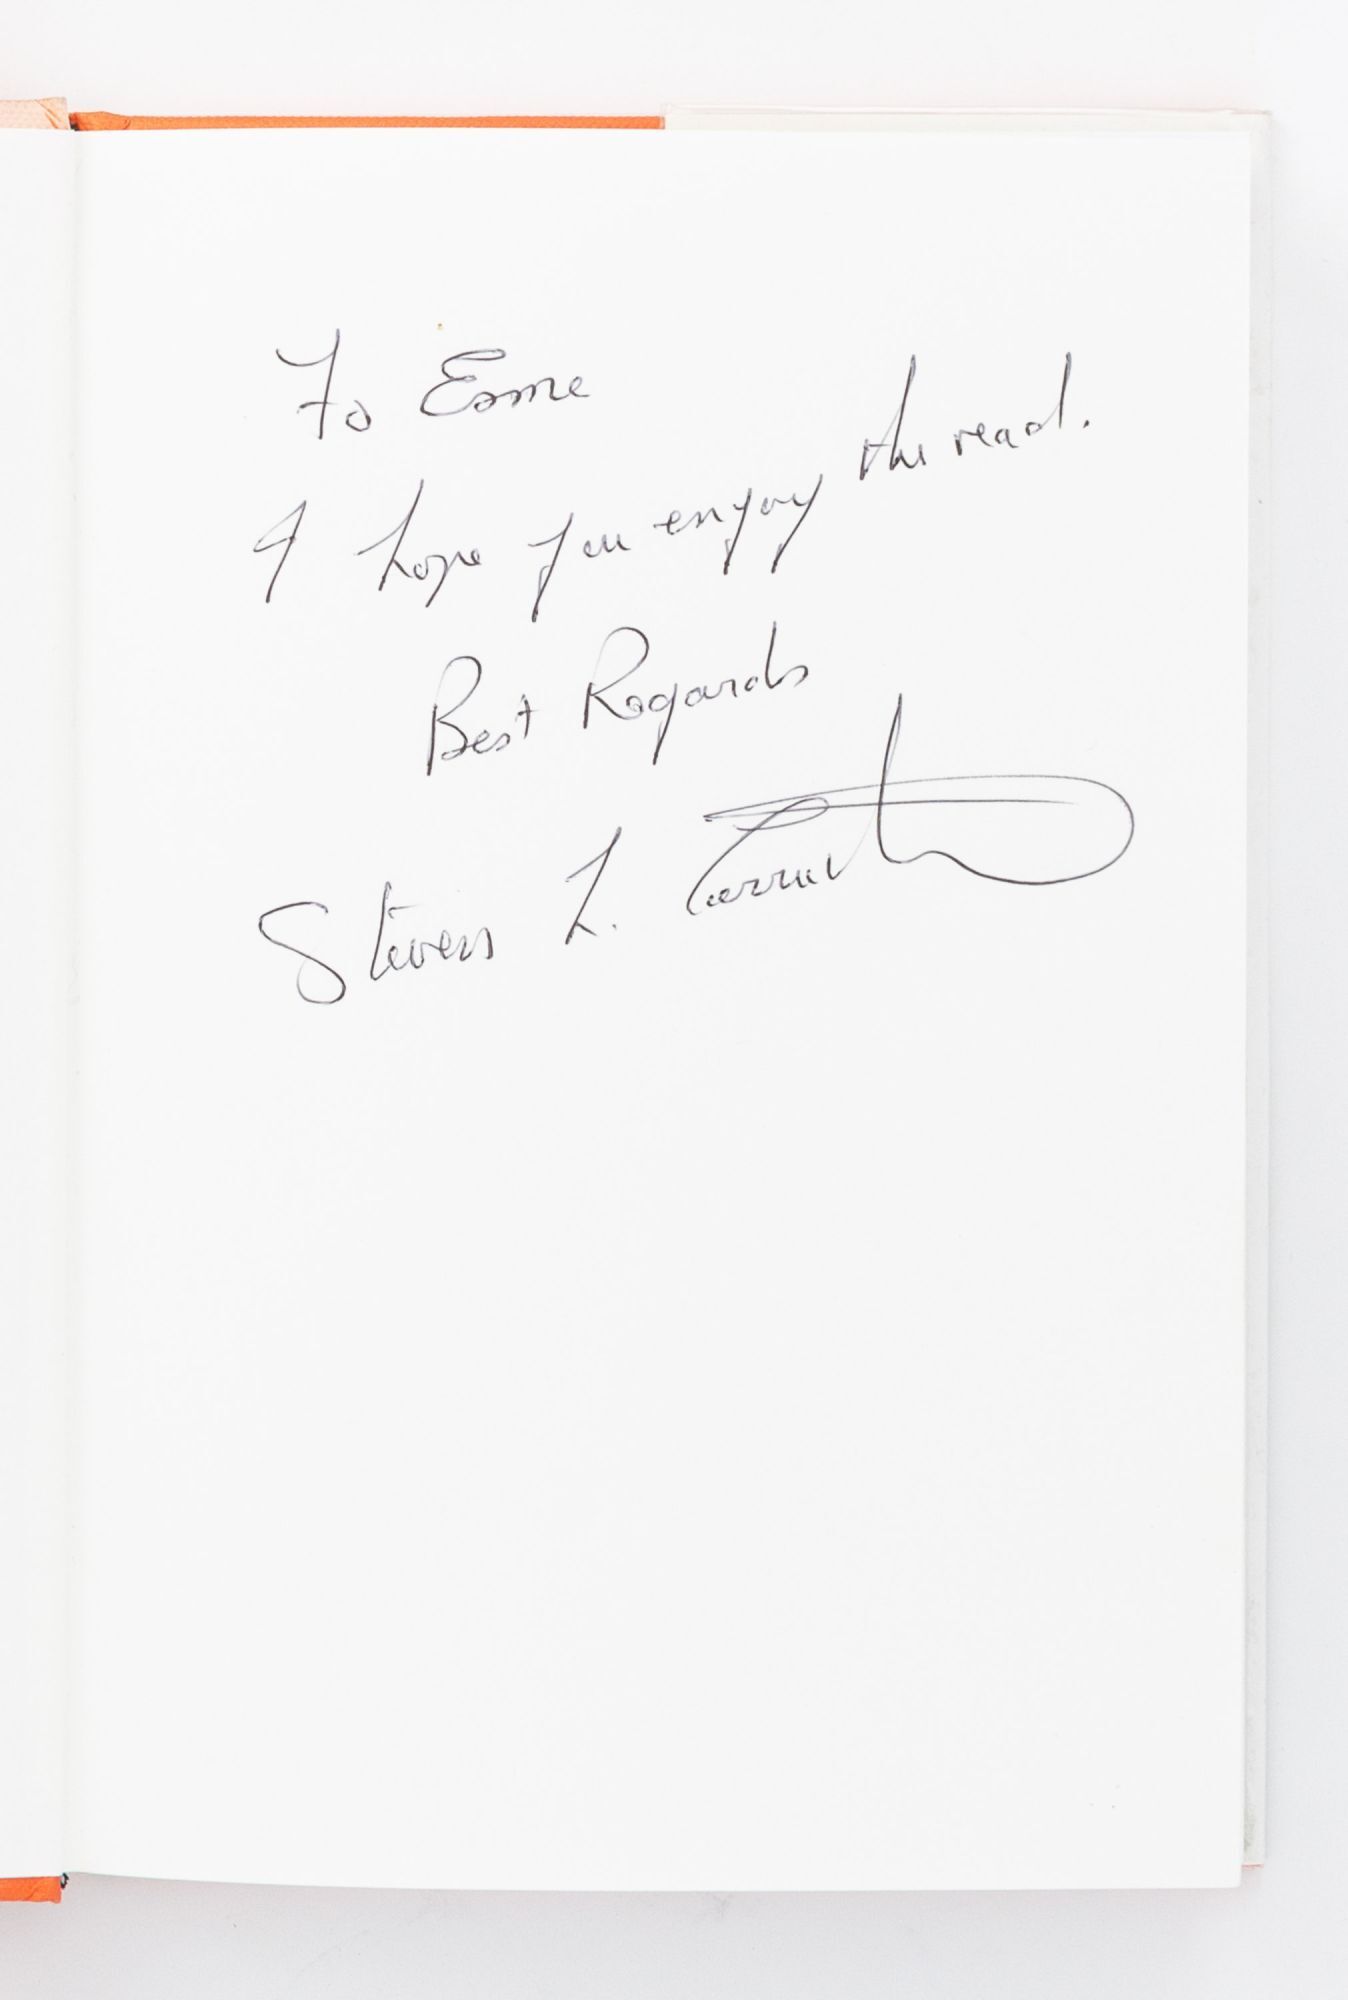 To Esme
I hope you enjoy the read.
Best Regards
Steven L. Carruth